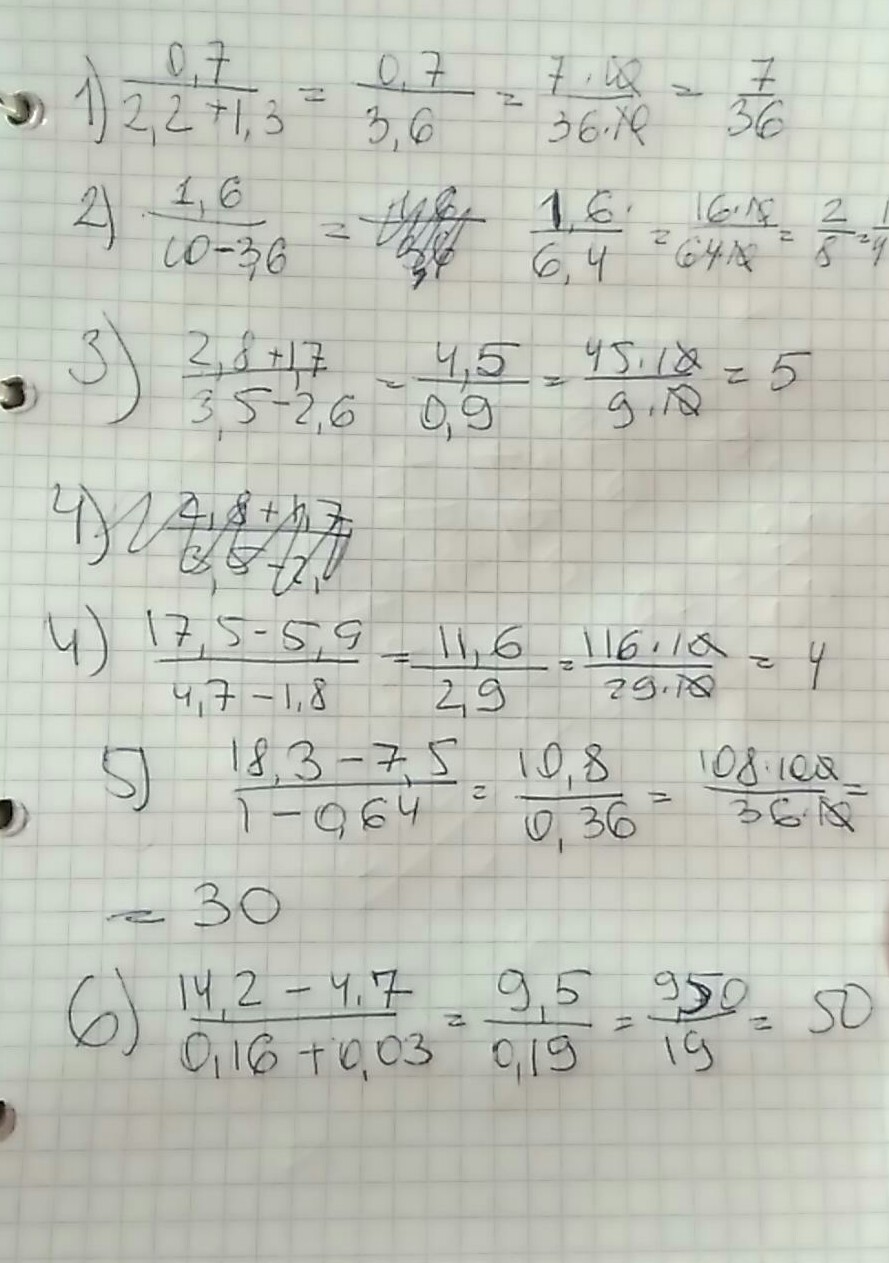 1) 0,7/(2,2+1,3) = 0,7/3,6 = 7·10/36·10 = 7/36
2) 1,6/(10-3,6) = 1,6/6,4 = 16·10/64·10 = 2/8 = 1/4
3) (2,8+1,7)/(3,5-2,6) = 4,5/0,9 = 45·10/9·10 = 5
4) (2,8+1,7)/
4) (17,5-5,9)/(4,7-1,8) = 11,6/2,9 = 116·10/29·10 = 4
5) (18,3-7,5)/(1-0,64) = 10,8/0,36 = 108·100/36·10 =
= 30
6) (14,2-4,7)/(0,16+0,03) = 9,5/0,19 = 950/19 = 50